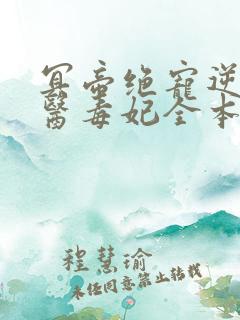 冥帝绝寵逆
醫毒妃全本
程慧瑜
未经同意禁止转载